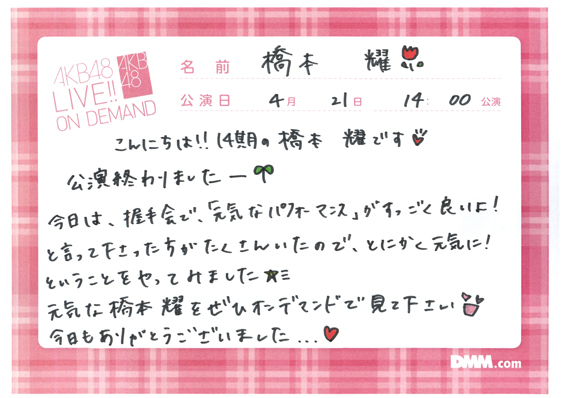 AKB48
LIVE!!
ON DEMAND
AKB
48
名前 橋本 耀
公演日 4月 21日 14:00 公演
こんにちは!!14期の橋本 耀です
公演終わりましたー
今日は、握手会で、「元気なパフォーマンス」がすっごく良いよ!
と言って下さった方がたくさんいたので、とにかく元気に!
ということをやってみました☆ミ
元気な橋本耀をぜひオンデマンドで見て下さい
今日もありがとうございました...
DMM.com